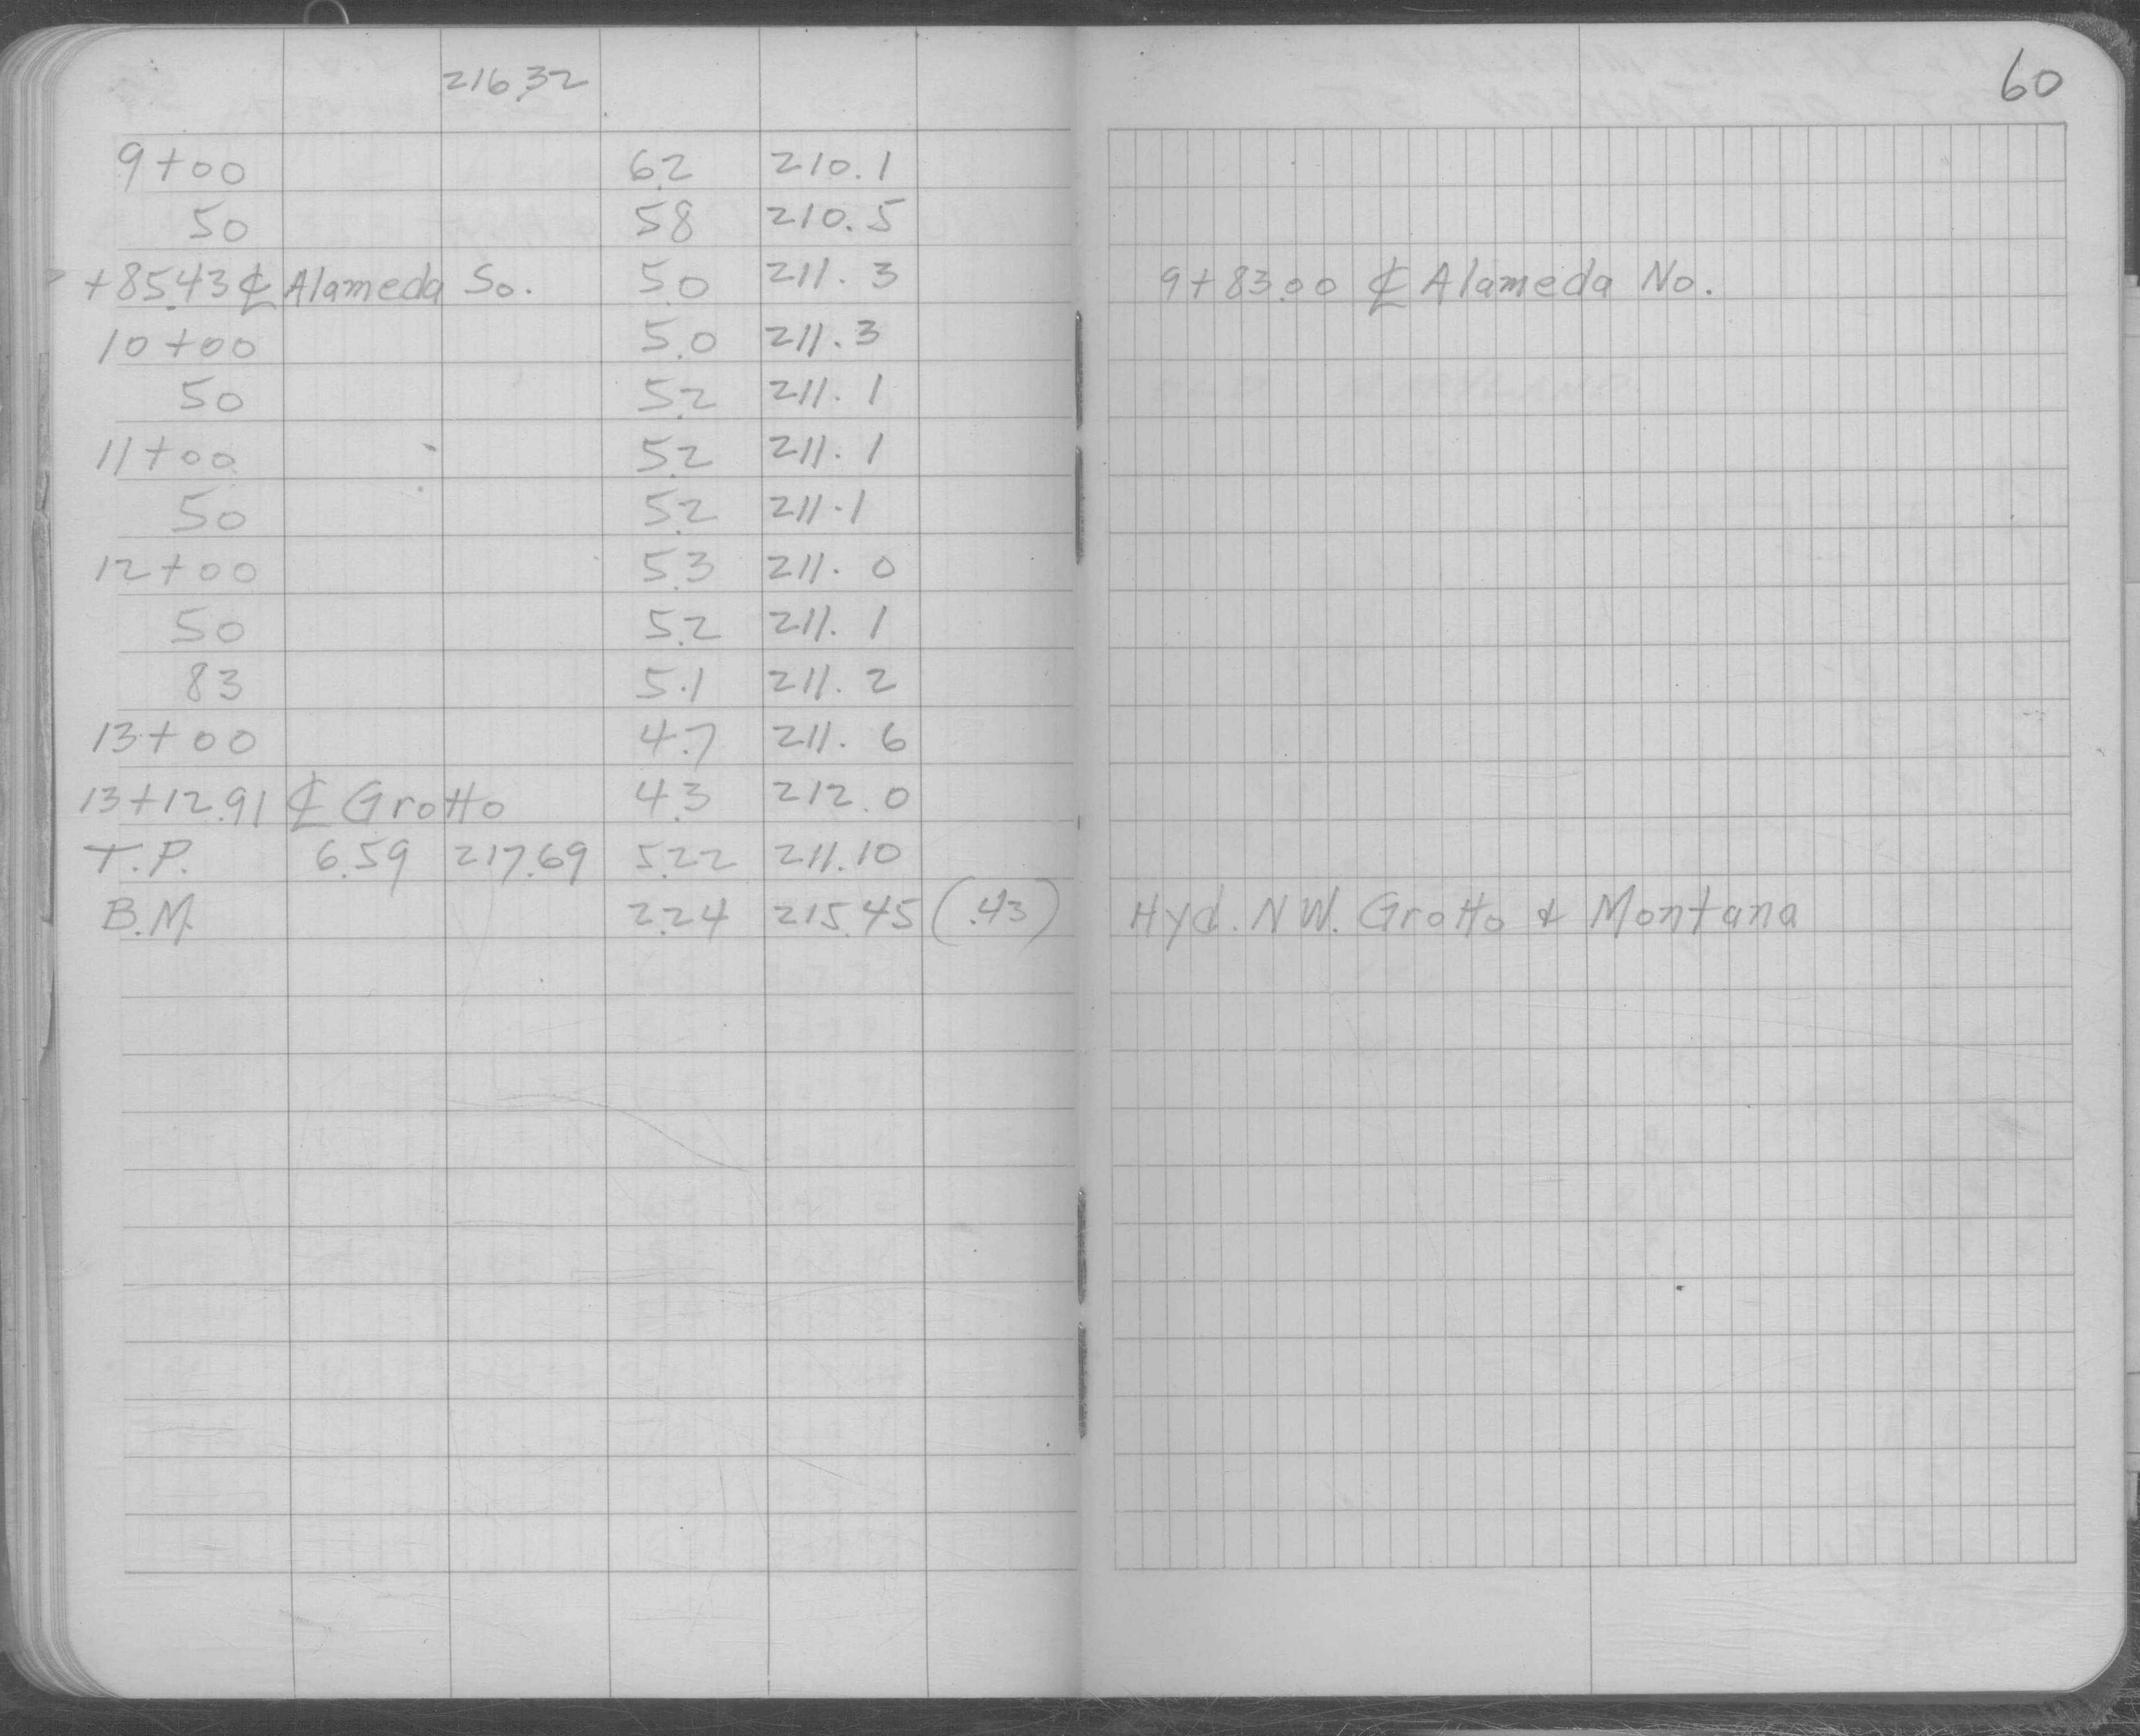 60
216.32
9+00 6.2 210.1
50 5.8 210.5
+85.43 ℄ Alameda So. 5.0 211.3 9+83.00 ℄ Alameda No.
10+00 5.0 211.3
50 5.2 211.1
11+00 5.2 211.1
50 5.2 211.1
12+00 5.3 211.0
50 5.2 211.1
83 5.1 211.2
13+00 4.7 211.6
13+12.91 ℄ Grotto 4.3 212.0
T.P. 6.59 217.69 5.22 211.10
B.M. 2.24 215.45 (.43) Hyd. N.W. Grotto & Montana